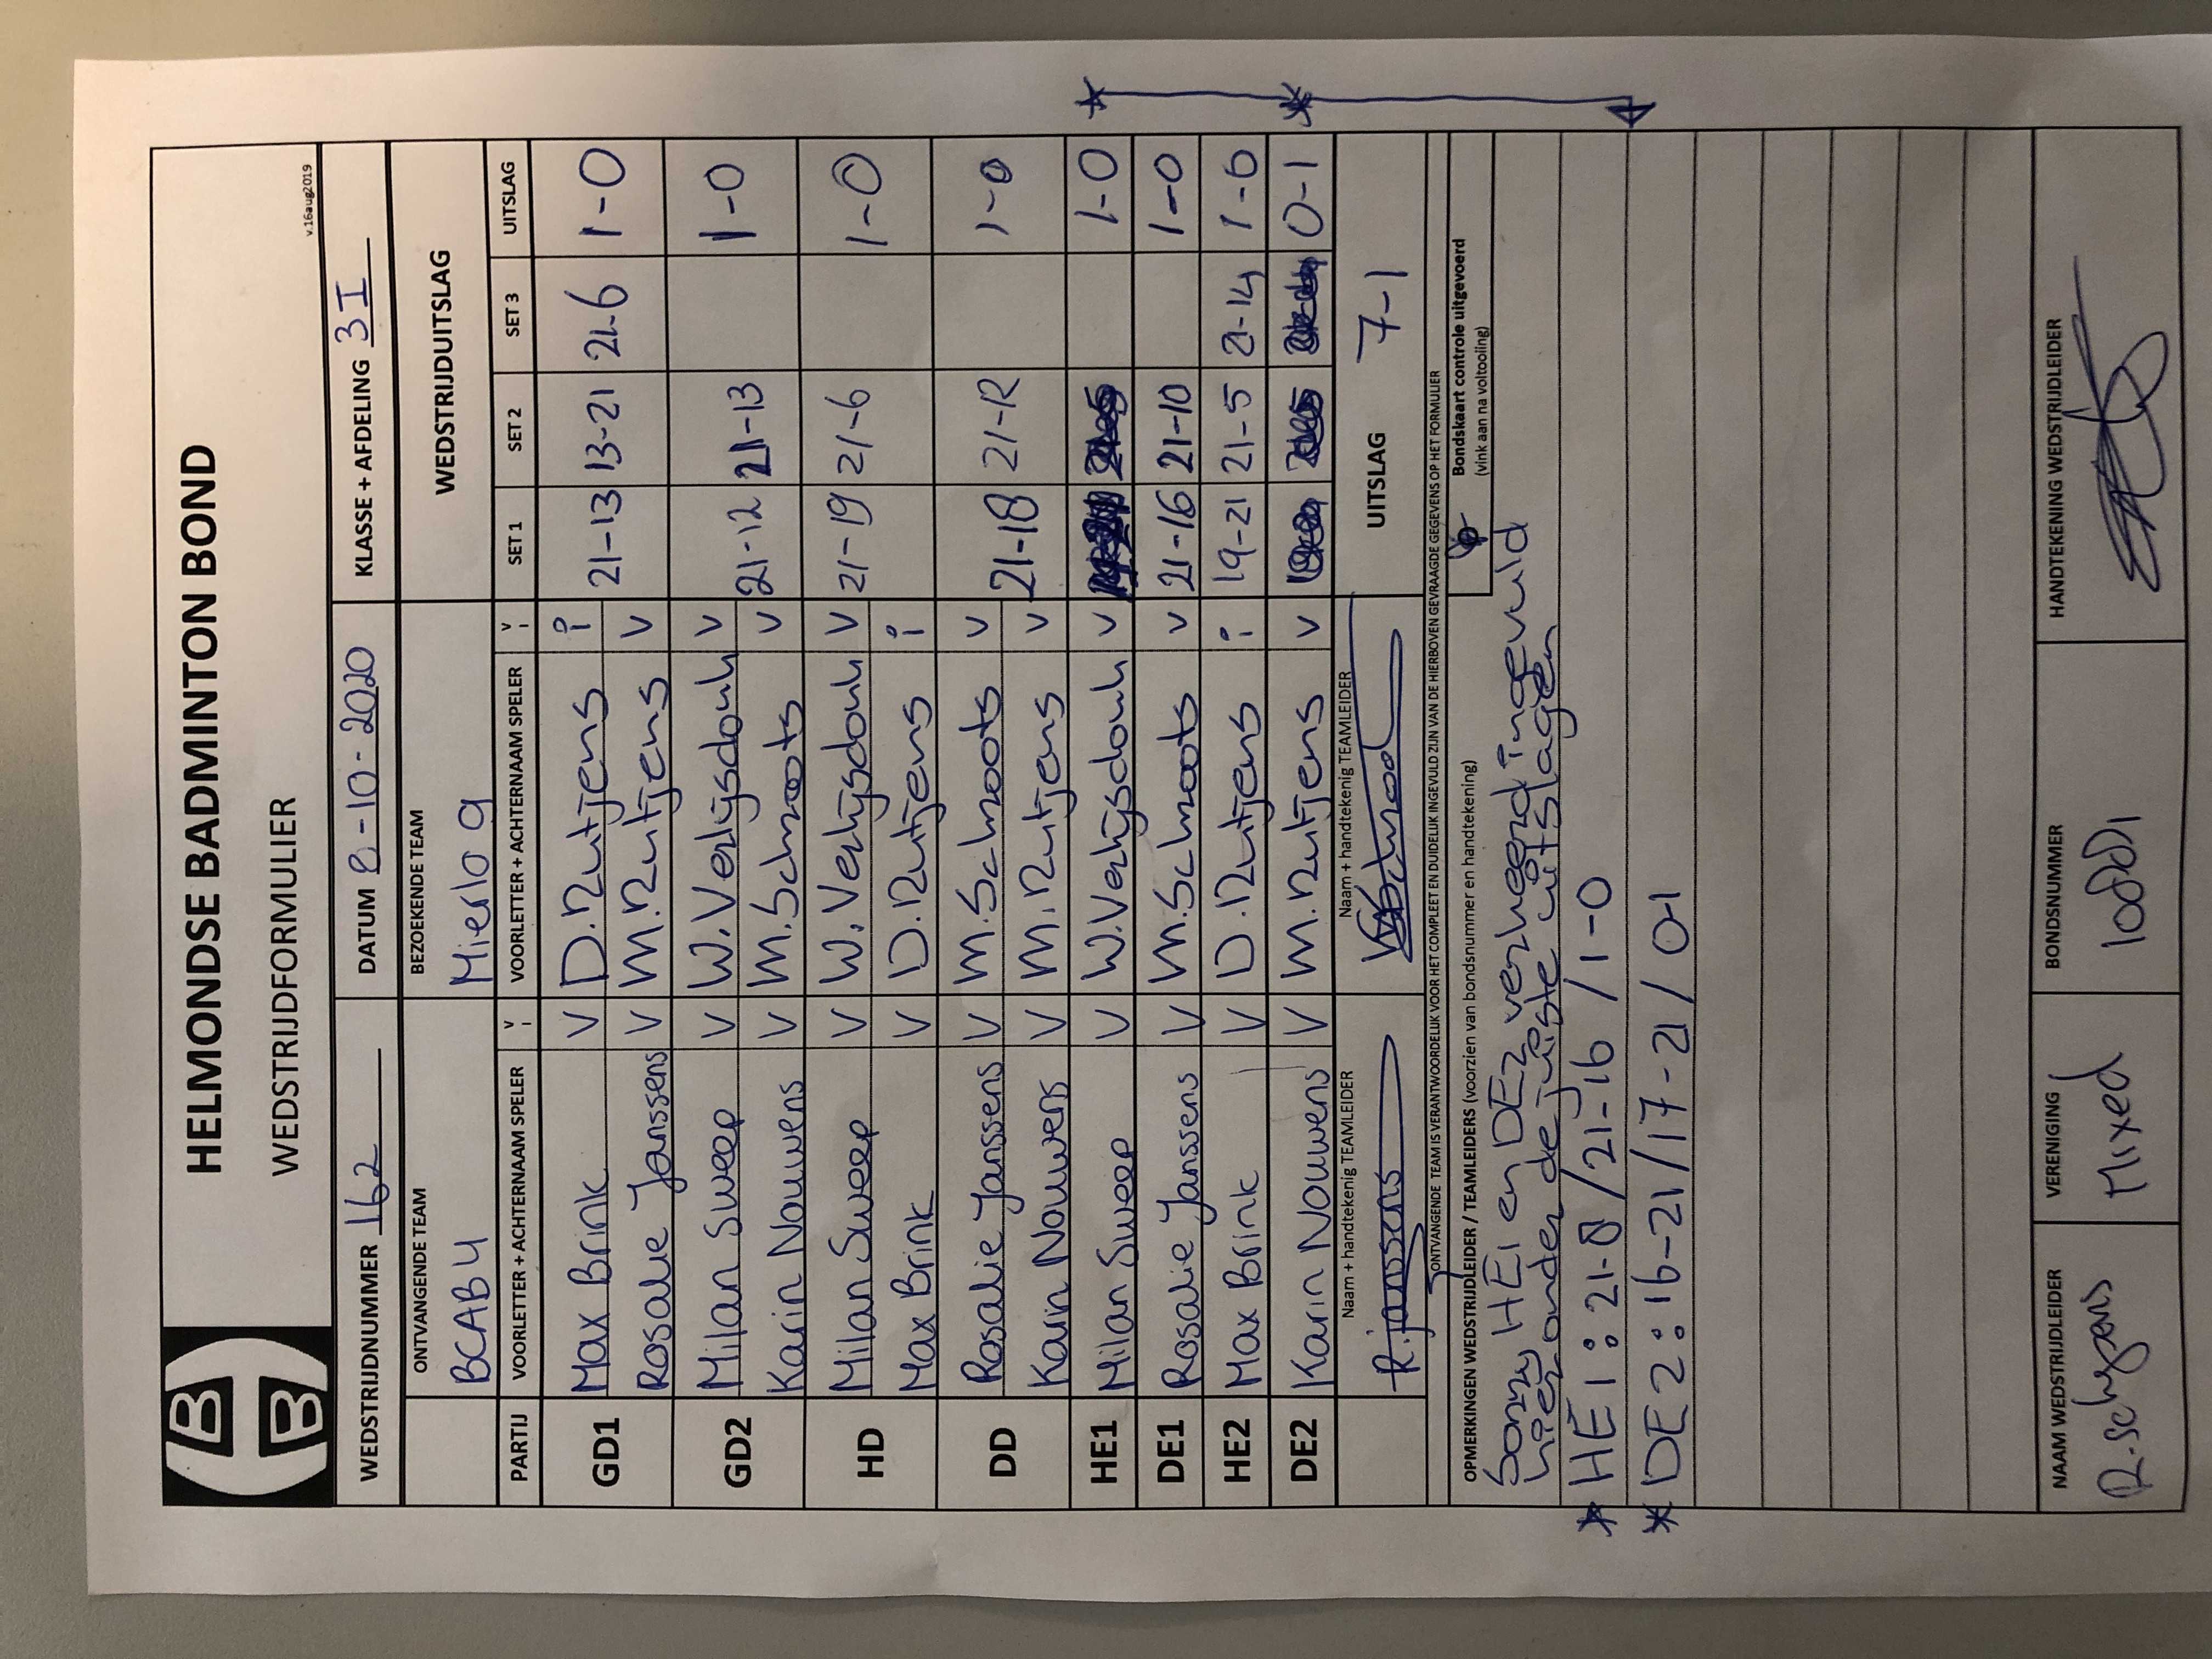 HELMONDSE BADMINTON BOND
WEDSTRIJDFORMULIER
v.16aug2019
WEDSTRIJDNUMMER 162 DATUM 8-10-2020 KLASSE + AFDELING 3I
ONTVANGENDE TEAM BEZOEKENDE TEAM WEDSTRIJDUITSLAG
BCAB 4 Mierlo 9
PARTIJ VOORLETTER + ACHTERNAAM SPELER V I VOORLETTER + ACHTERNAAM SPELER V I SET 1 SET 2 SET 3 UITSLAG
GD1 Max Brink V D. Rutjens i 21-13 13-21 21-6 1-0
Rosalie Janssens V M. Rutjens V
GD2 Milan Sweep V W. Verhijsdonk V 21-12 21-13 1-0
Karin Nouwens V M. Schroots V
HD Milan Sweep V W. Verhijsdonk V 21-19 21-6 1-0
Max Brink V D. Rutjens i
DD Rosalie Janssens V M. Schroots V 21-18 21-12 1-0
Karin Nouwens V M. Rutjens V
HE1 Milan Sweep V W. Verhijsdonk V 1-0
DE1 Rosalie Janssens V M. Schroots V 21-16 21-10 1-0
HE2 Max Brink V D. Rutjens i 19-21 21-5 21-14 1-0
DE2 Karin Nouwens V M. Rutjens V 0-1
Naam + handtekenig TEAMLEIDER Naam + handtekenig TEAMLEIDER UITSLAG 7-1
R. janssens
ONTVANGENDE TEAM IS VERANTWOORDELIJK VOOR HET COMPLEET EN DUIDELIJK INGEVULD ZIJN VAN DE HIERBOVEN GEVRAAGDE GEGEVENS OP HET FORMULIER
OPMERKINGEN WEDSTRIJDLEIDER / TEAMLEIDERS (voorzien van bondsnummer en handtekening)
Bondskaart controle uitgevoerd
(vink aan na voltooiing)
Sorry HE1 en DE2 verkeerd ingevuld
hier onder de juiste uitslagen
* HE1: 21-8 / 21-16 / 1-0
* DE2: 16-21 / 17-21 / 0-1
NAAM WEDSTRIJDLEIDER VERENIGING BONDSNUMMER HANDTEKENING WEDSTRIJDLEIDER
Mixed